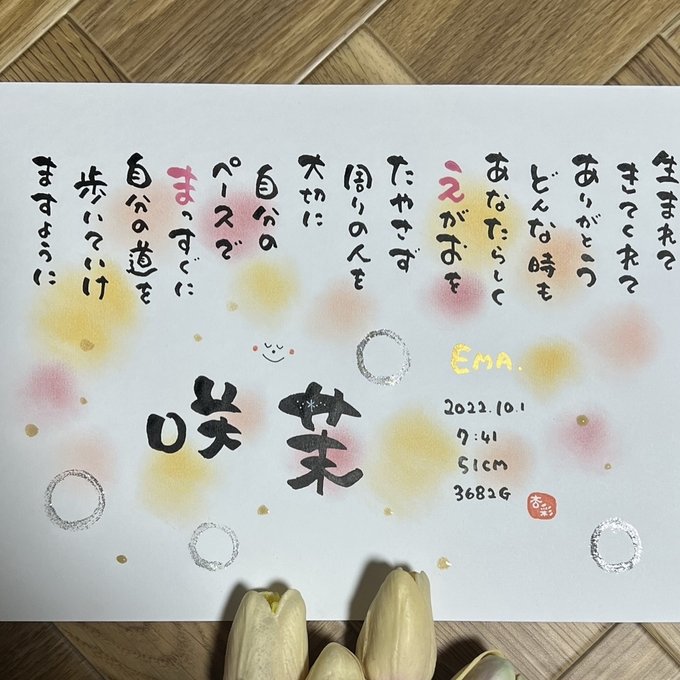 生まれて
きてくれて
ありがとう
どんな時も
あなたらしく
えがおを
たやさず
周りの人を
大切に
自分の
ペースで
まっすぐに
自分の道を
歩いていけ
ますように
咲茉
EMA.
2022.10.1
7:41
51CM
3682G
杏彩